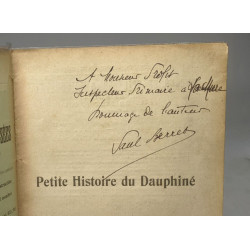 A Monsieur Profit
Inspecteur Primaire à
Hommage de l'auteur
Paul Berret
Petite Histoire du Dauphiné